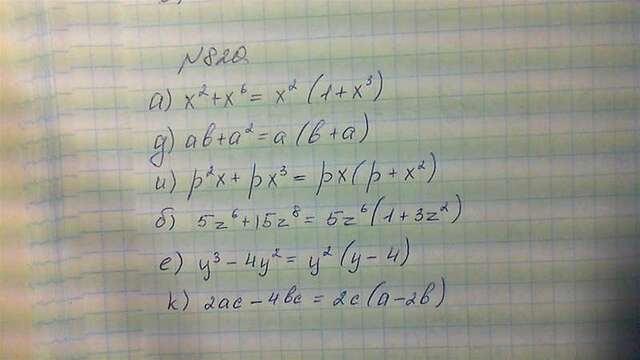 №820.
а) x² + x⁶ = x² (1 + x³)
д) ab + a² = a (b + a)
и) p²x + px³ = px (p + x²)
б) 5z⁶ + 15z⁸ = 5z⁶ (1 + 3z²)
е) y³ - 4y² = y² (y - 4)
к) 2ac - 4bc = 2c (a - 2b)